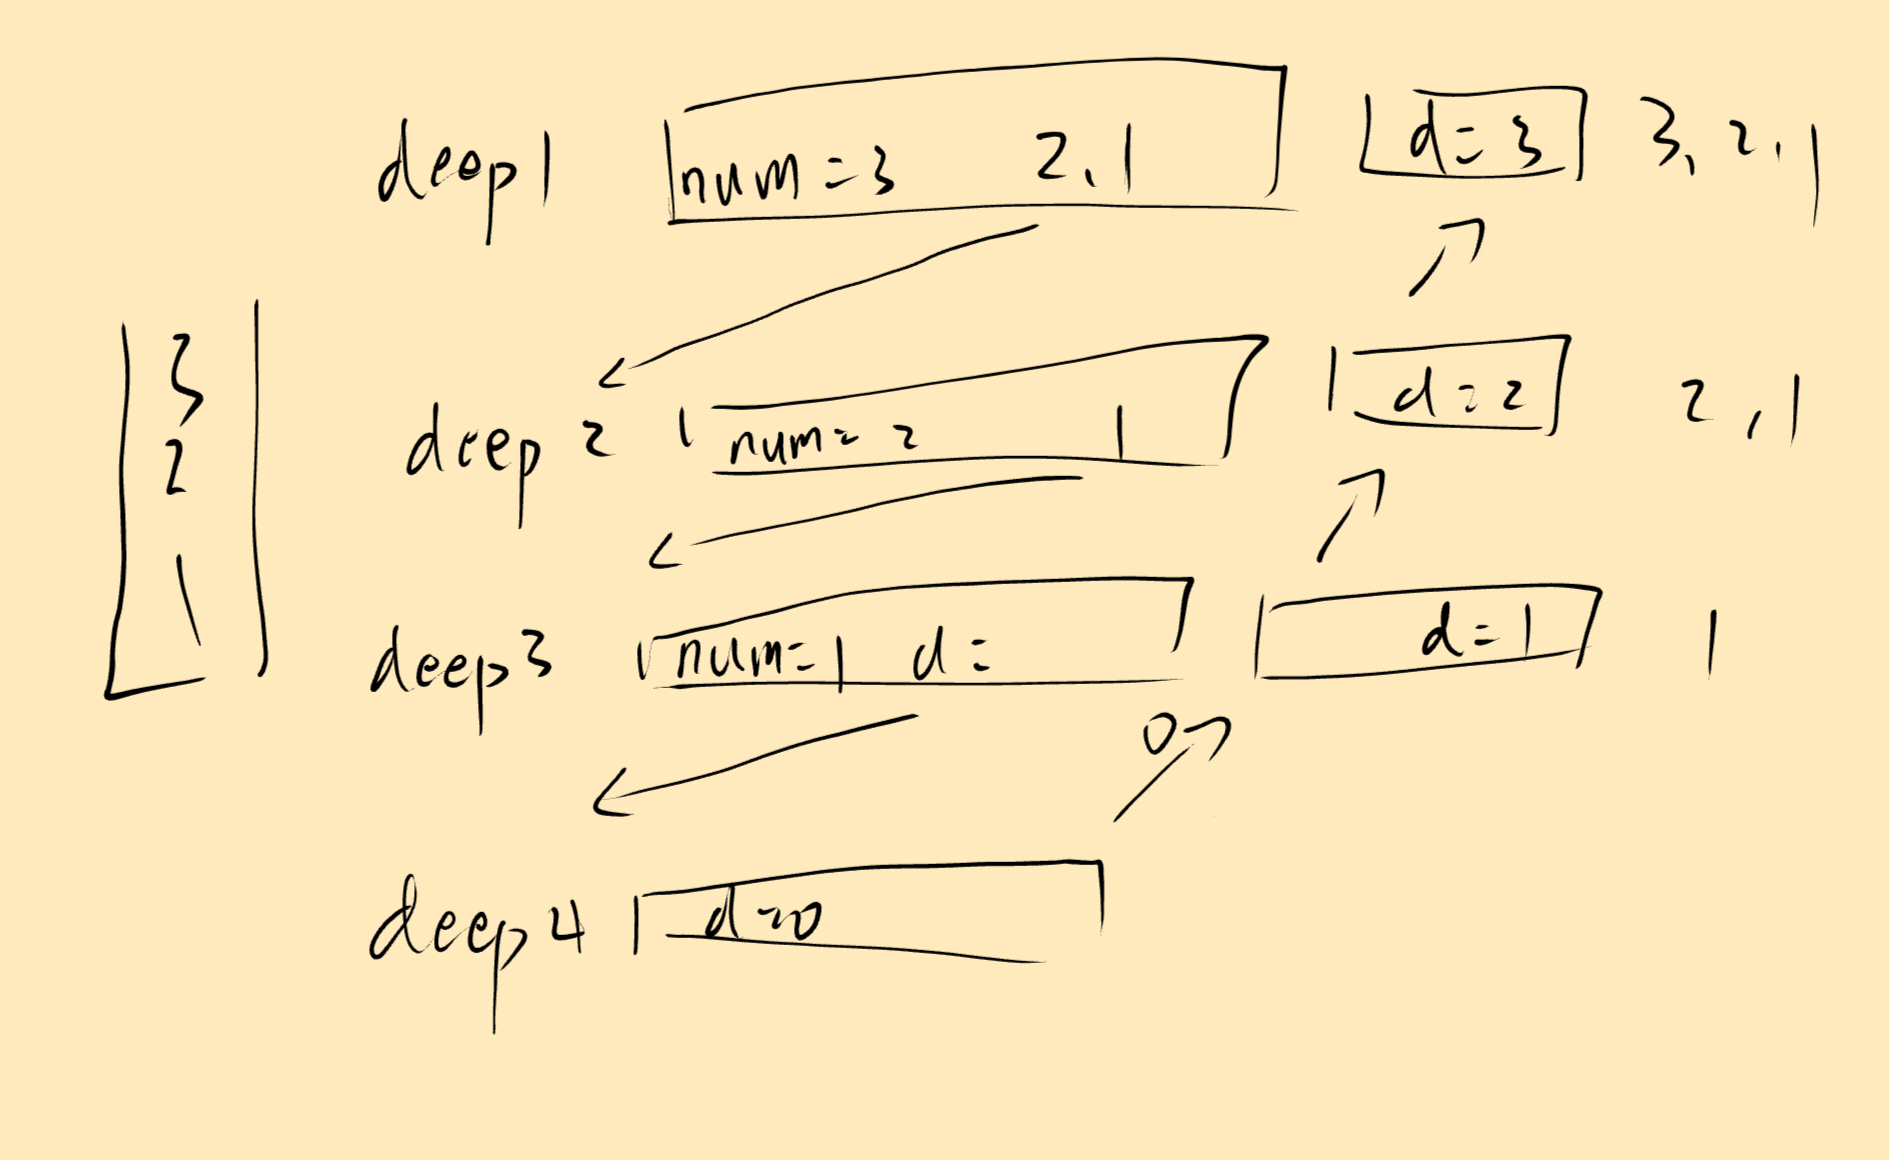 deep1 num=3 2,1 d=3 3,2,1
3
2
1
deep 2 num=2 1 d=2 2,1
deep3 num=1 d= d=1 1
0
deep4 d=0